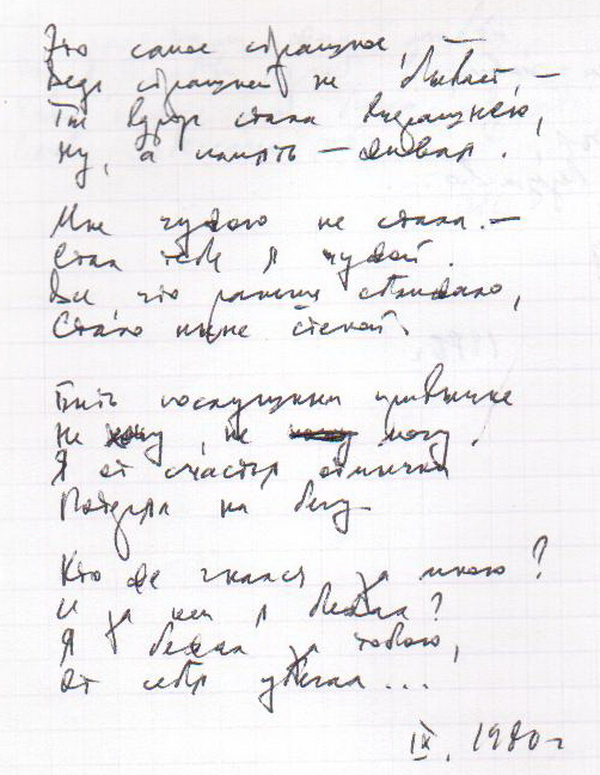 Это самое страшное,
Ведь страшней не бывает, —
Ты вдруг стала вчерашнею,
Ну, а память — живая.
Мне чужою не стала. —
Стал тебе я чужой.
Всё что раньше сближало,
Стало ныне стеной.
Быть послушным привычке
Не хочу, не могу.
Я от счастья отмычки
Потерял на бегу.
Кто же гнался за мною?
И за кем я бежал?
Я бежал за тобою,
От себя убегал...
IX. 1980 г